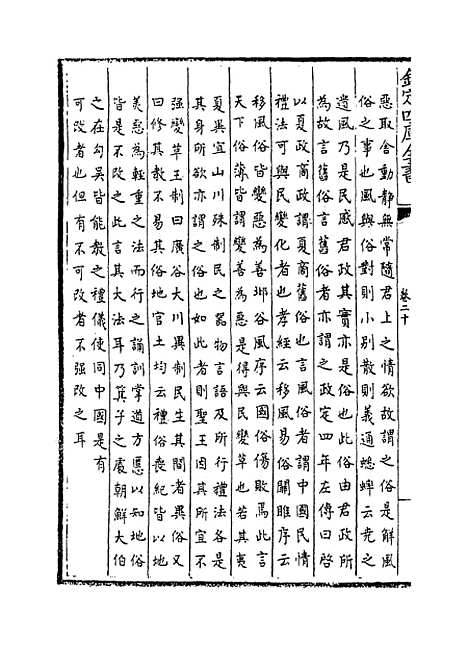 欽定四庫全書
卷二十
惡取舍動靜無常隨君上之情欲故謂之俗是解風
俗之事也風與俗對則小別散則義通蟋蟀云堯之
遺風乃是民感君政其實亦是俗也此俗由君政所
為故言舊俗言舊俗者亦謂之政定四年左傳曰啓
以夏政商政謂夏商舊俗也言風俗者謂中國民情
禮法可與民變化者也孝經云移風易俗關雎序云
移風俗皆變惡為善邶谷風序云國俗傷敗焉此言
天下俗薄皆謂變善為惡是得與民變革也若其夷
夏異宜山川殊制民之器物言語及所行禮法各是
其身所欲亦謂之俗也如此者則聖王因其所宜不
強變革王制曰廣谷大川異制民生其間者異俗又
曰修其教不易其俗地官土均云禮俗喪紀皆以地
美惡為輕重之法而行之誦訓掌道方慝以知地俗
皆是不改之此言其大法耳乃箕子之處朝鮮大伯
之在勾吳皆能教之禮儀使同中國是有
可改者也但有不可改者不强改之耳